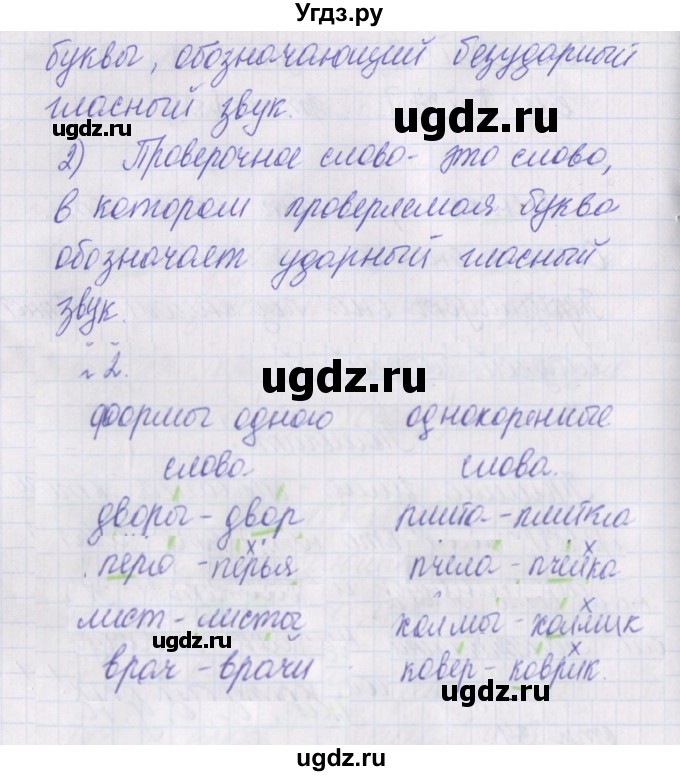 Угдз.ру
буквы, обозначающий безударный
гласный звук.
ugdz.ru
ugdz.ru
2) Проверочное слово - это слово,
в котором проверяемая буква
обозначает ударный гласный
звук.
№ 2.
ugdz.ru
формы одного однокоренные
слова слова.
дворы - двор плита - плитка
перо - перья пчела - пчёлка
лист - листы холмы - холмик
ugdz.ru
врач - врачи ковёр - коврик.
ugdz.ru